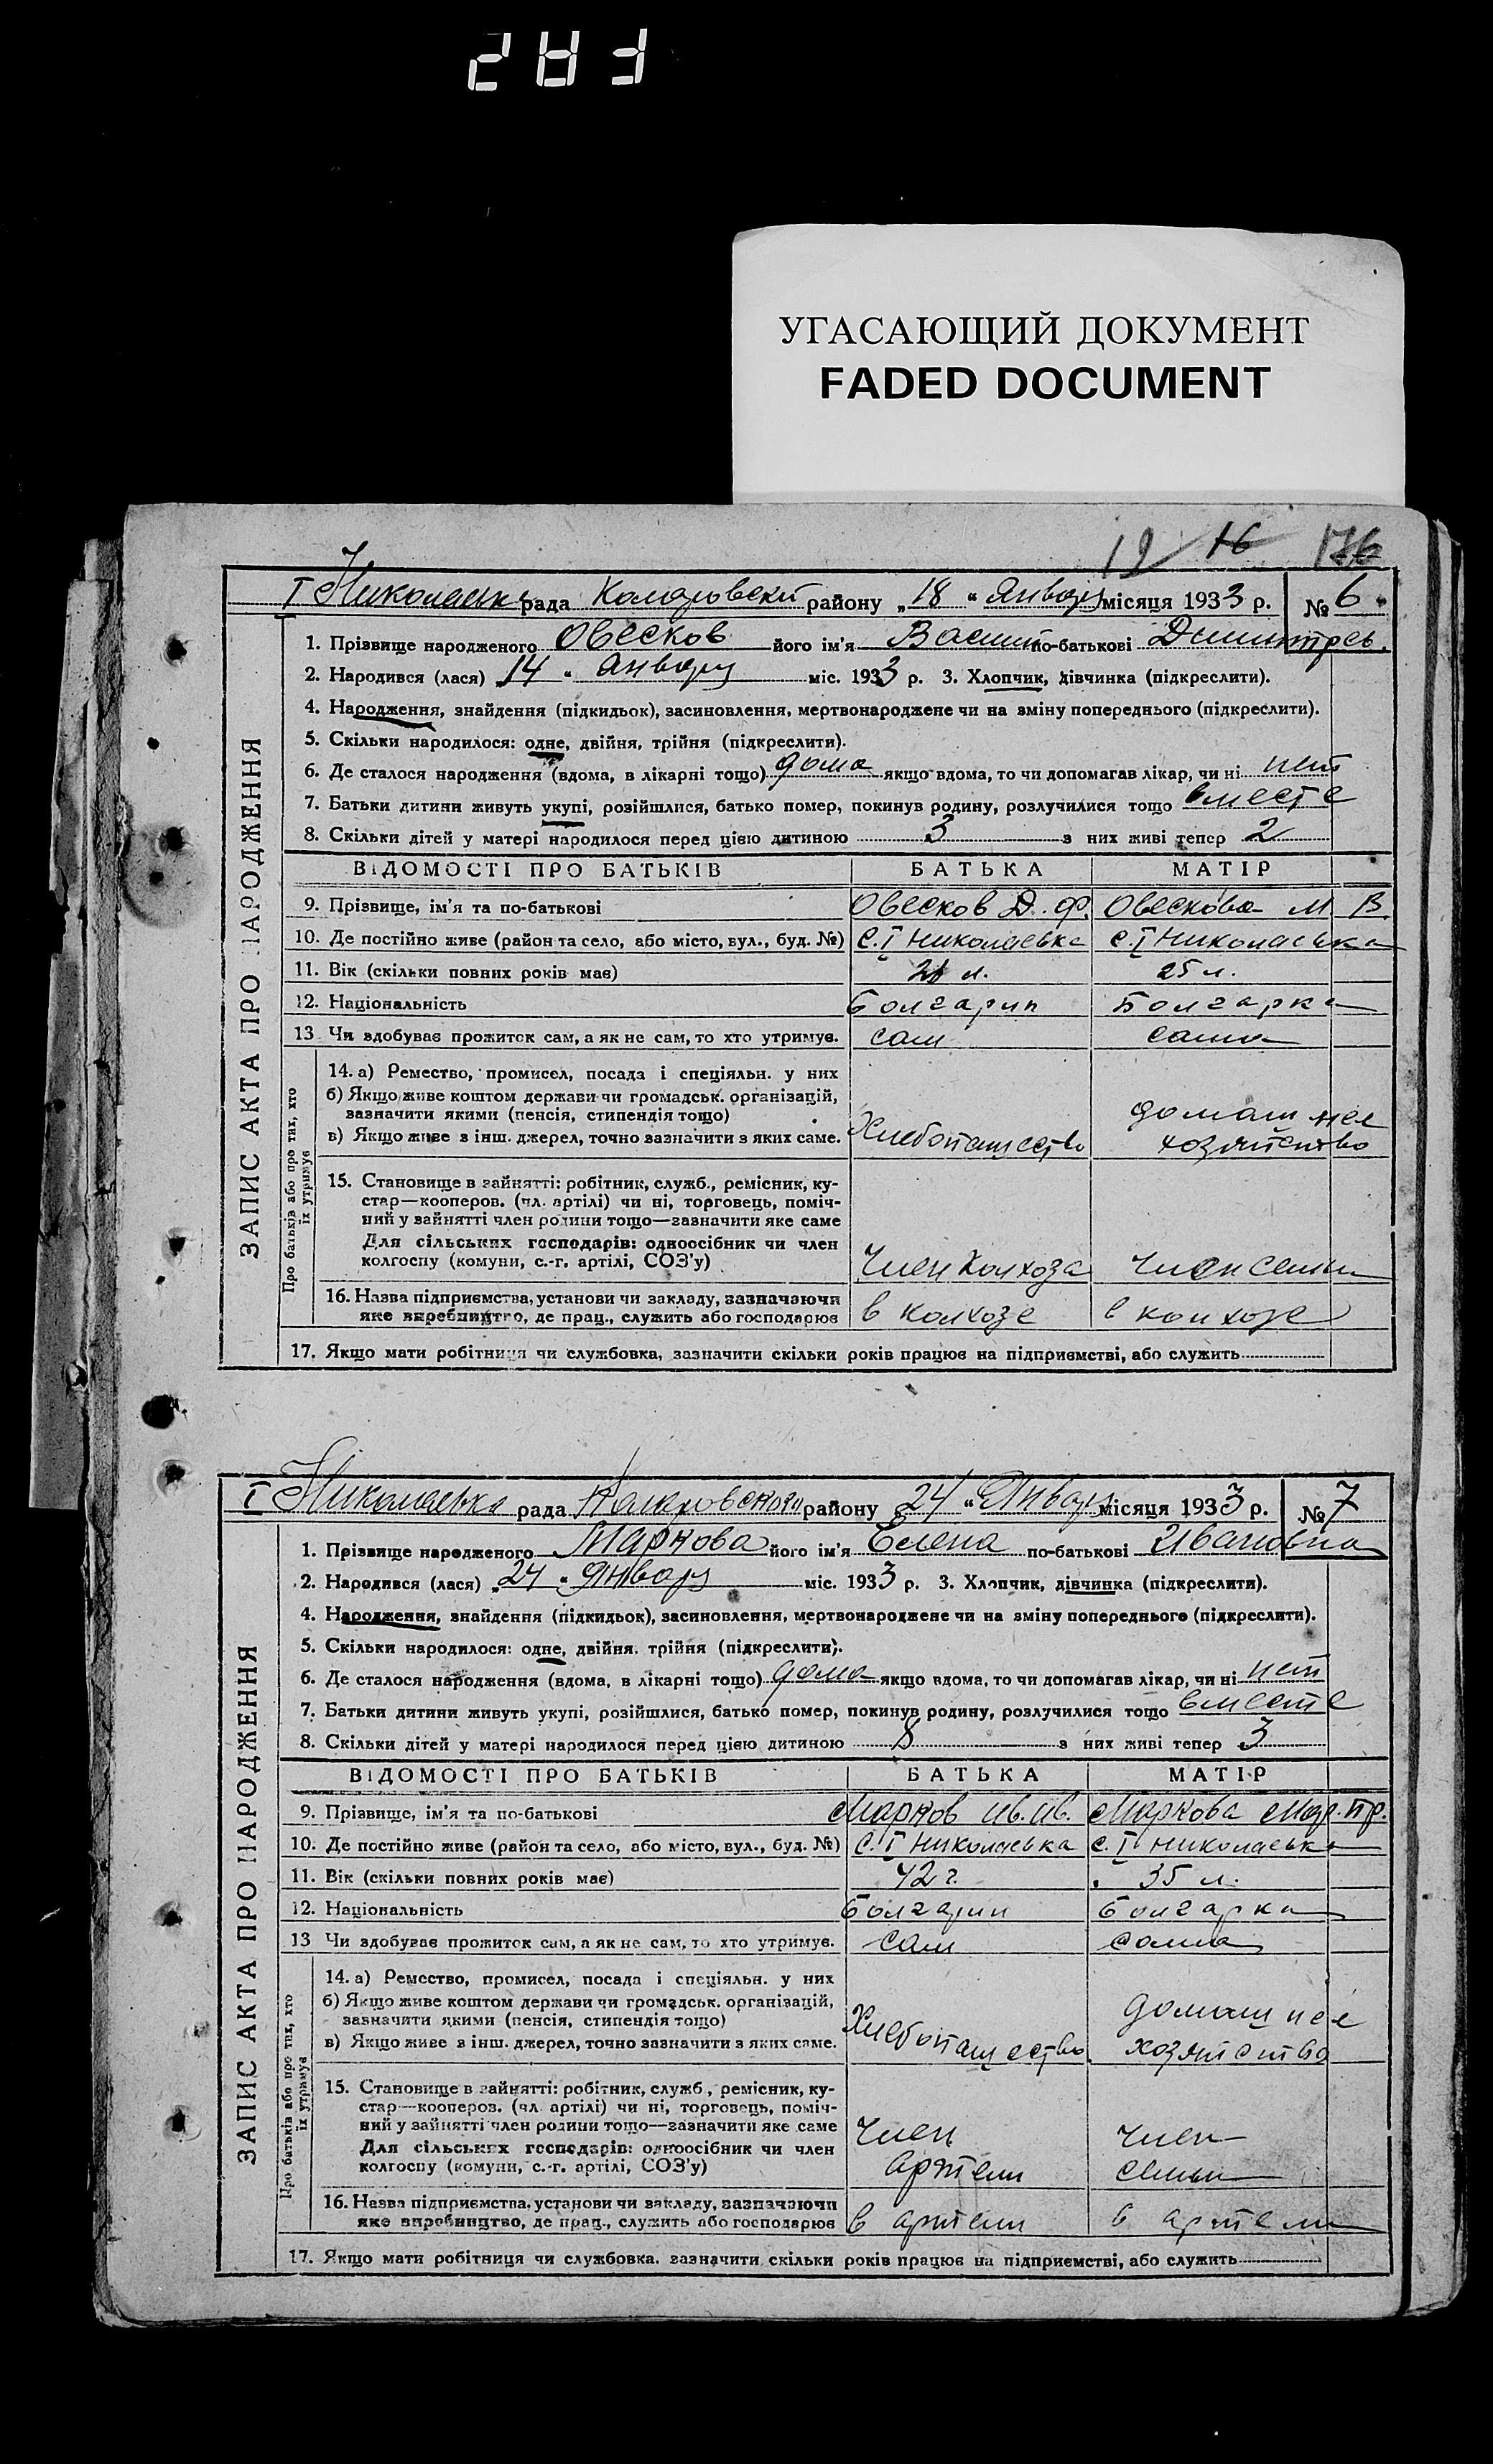 283
УГАСАЮЩИЙ ДОКУМЕНТ
FADED DOCUMENT
12 16 176
І Николаевка рада Коларовский району „18“ Января місяця 1933 р. № 6
ЗАПИС АКТА ПРО НАРОДЖЕННЯ
1. Прізвище народженого Овесков його ім'я Васили по-батькові Димитрев.
2. Народився (лася) 14 „ Января міс. 1933 р. 3. Хлопчик, дівчинка (підкреслити).
4. Народження, знайдення (підкидьок), засиновлення, мертвонароджене чи на зміну попереднього (підкреслити).
5. Скільки народилося: одне, двійня, трійня (підкреслити).
6. Де сталося народження (вдома, в лікарні тощо) дома якщо вдома, то чи допомагав лікар, чи ні нет
7. Батьки дитини живуть укупі, розійшлися, батько помер, покинув родину, розлучилися тощо вместе
8. Скільки дітей у матері народилося перед цією дитиною 3 з них живі тепер 2
ВІДОМОСТІ ПРО БАТЬКІВ БАТЬКА МАТІР
9. Прізвище, ім'я та по-батькові Овесков Д. Ф. Овескова М В.
10. Де постійно живе (район та село, або місто, вул., буд. №) С. І Николаевка С. І Николаевка
11. Вік (скільки повних років має) л. 25 л.
12. Національність Болгарин Болгарка
13 Чи здобуває прожиток сам, а як не сам, то хто утримує. сам сама
Про батьків або про тих, хто їх утримує
14. а) Ремество, промисел, посада і спеціяльн. у них
б) Якщо живе коштом держави чи громадськ. організацій,
зазначити якими (пенсія, стипендія тощо)
в) Якщо живе з інш. джерел, точно зазначити з яких саме. Хлебопашество домашнее хозяйство
15. Становище в зайнятті: робітник, служб., ремісник, ку-
стар—кооперов. (чл. артілі) чи ні, торговець, поміч-
ний у зайнятті член родини тощо—зазначити яке саме
Для сільських господарів: одноосібник чи член
колгоспу (комуни, с.-г. артілі, СОЗ'у) Член Колхоза Член семьи
16. Назва підприємства, установи чи закладу, зазначаючи
яке виробництво, де прац., служить або господарює в колхозе в колхозе
17. Якщо мати робітниця чи службовка, зазначити скільки років працює на підприємстві, або служить
І Николаевка рада району 24 “ Января місяця 1933 р. № 7
ЗАПИС АКТА ПРО НАРОДЖЕННЯ
1. Прізвище народженого Маркова його ім'я Елена по-батькові Ивановна
2. Народився (лася) „24 “ Января міс. 1933 р. 3. Хлопчик, дівчинка (підкреслити).
4. Народження, знайдення (підкидьок), засиновлення, мертвонароджене чи на зміну попереднього (підкреслити).
5. Скільки народилося: одне, двійня, трійня (підкреслити).
6. Де сталося народження (вдома, в лікарні тощо) дома якщо вдома, то чи допомагав лікар, чи ні нет
7. Батьки дитини живуть укупі, розійшлися, батько помер, покинув родину, розлучилися тощо вместе
8. Скільки дітей у матері народилося перед цією дитиною 8 з них живі тепер 3
ВІДОМОСТІ ПРО БАТЬКІВ БАТЬКА МАТІР
9. Прізвище, ім'я та по-батькові Марков Ив. Ив. Маркова Мар. Пр.
10. Де постійно живе (район та село, або місто, вул., буд. №) С. І Николаевка С. І Николаевка
11. Вік (скільки повних років має) 42 г. 35 л.
12. Національність Болгарин Болгарка
13 Чи здобуває прожиток сам, а як не сам, то хто утримує. сам сама
Про батьків або про тих, хто їх утримує
14. а) Ремество, промисел, посада і спеціяльн. у них
б) Якщо живе коштом держави чи громадськ. організацій,
зазначити якими (пенсія, стипендія тощо)
в) Якщо живе з інш. джерел, точно зазначити з яких саме. Хлебопашество домашнее хозяйство
15. Становище в зайнятті: робітник, служб., ремісник, ку-
стар—кооперов. (чл. артілі) чи ні, торговець, поміч-
ний у зайнятті член родини тощо—зазначити яке саме
Для сільських господарів: одноосібник чи член
колгоспу (комуни, с.-г. артілі, СОЗ'у) Член артели Член семьи
16. Назва підприємства, установи чи закладу, зазначаючи
яке виробництво, де прац., служить або господарює в артели в артели
17. Якщо мати робітниця чи службовка, зазначити скільки років працює на підприємстві, або служить